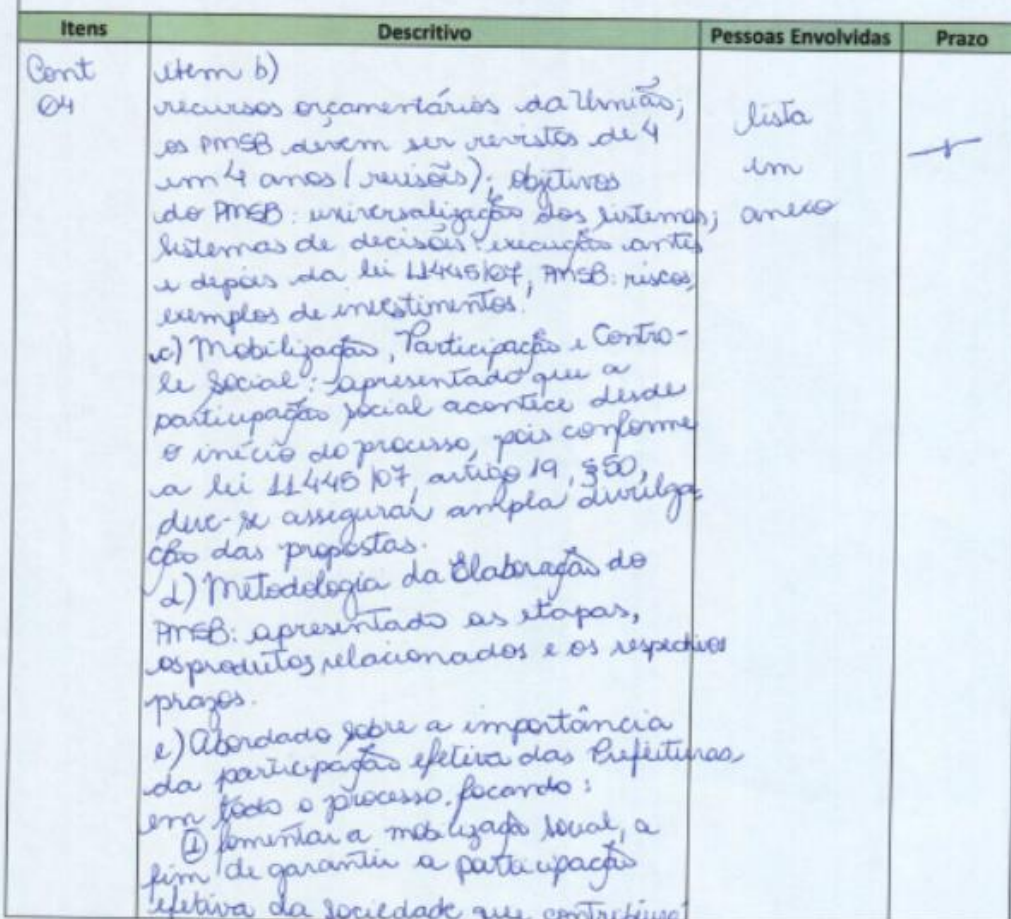 Itens Descritivo Pessoas Envolvidas Prazo
Cont item b)
04 recursos orçamentários da União; lista
os PMSB devem ser revistos de 4 em
em 4 anos (revisões); objetivos anexo
do PMSB: universalização dos sistemas;
sistemas de decisões execução antes
e depois da lei 11445/07, PMSB: riscos,
exemplos de investimentos.
c) Mobilização, Participação e Contro-
le Social: apresentado que a
participação social acontece desde
o início do processo, pois conforme
a lei 11445/07, artigo 19, §50,
deve-se assegurar ampla divulga-
ção das propostas.
d) Metodologia da Elaboração do
PMSB: apresentado as etapas,
os produtos relacionados e os respectivos
prazos.
e) Abordado sobre a importância
da participação efetiva das Prefeituras
em todo o processo, focando:
① fomentar a mobilização social, a
fim de garantir a participação
efetiva da sociedade que